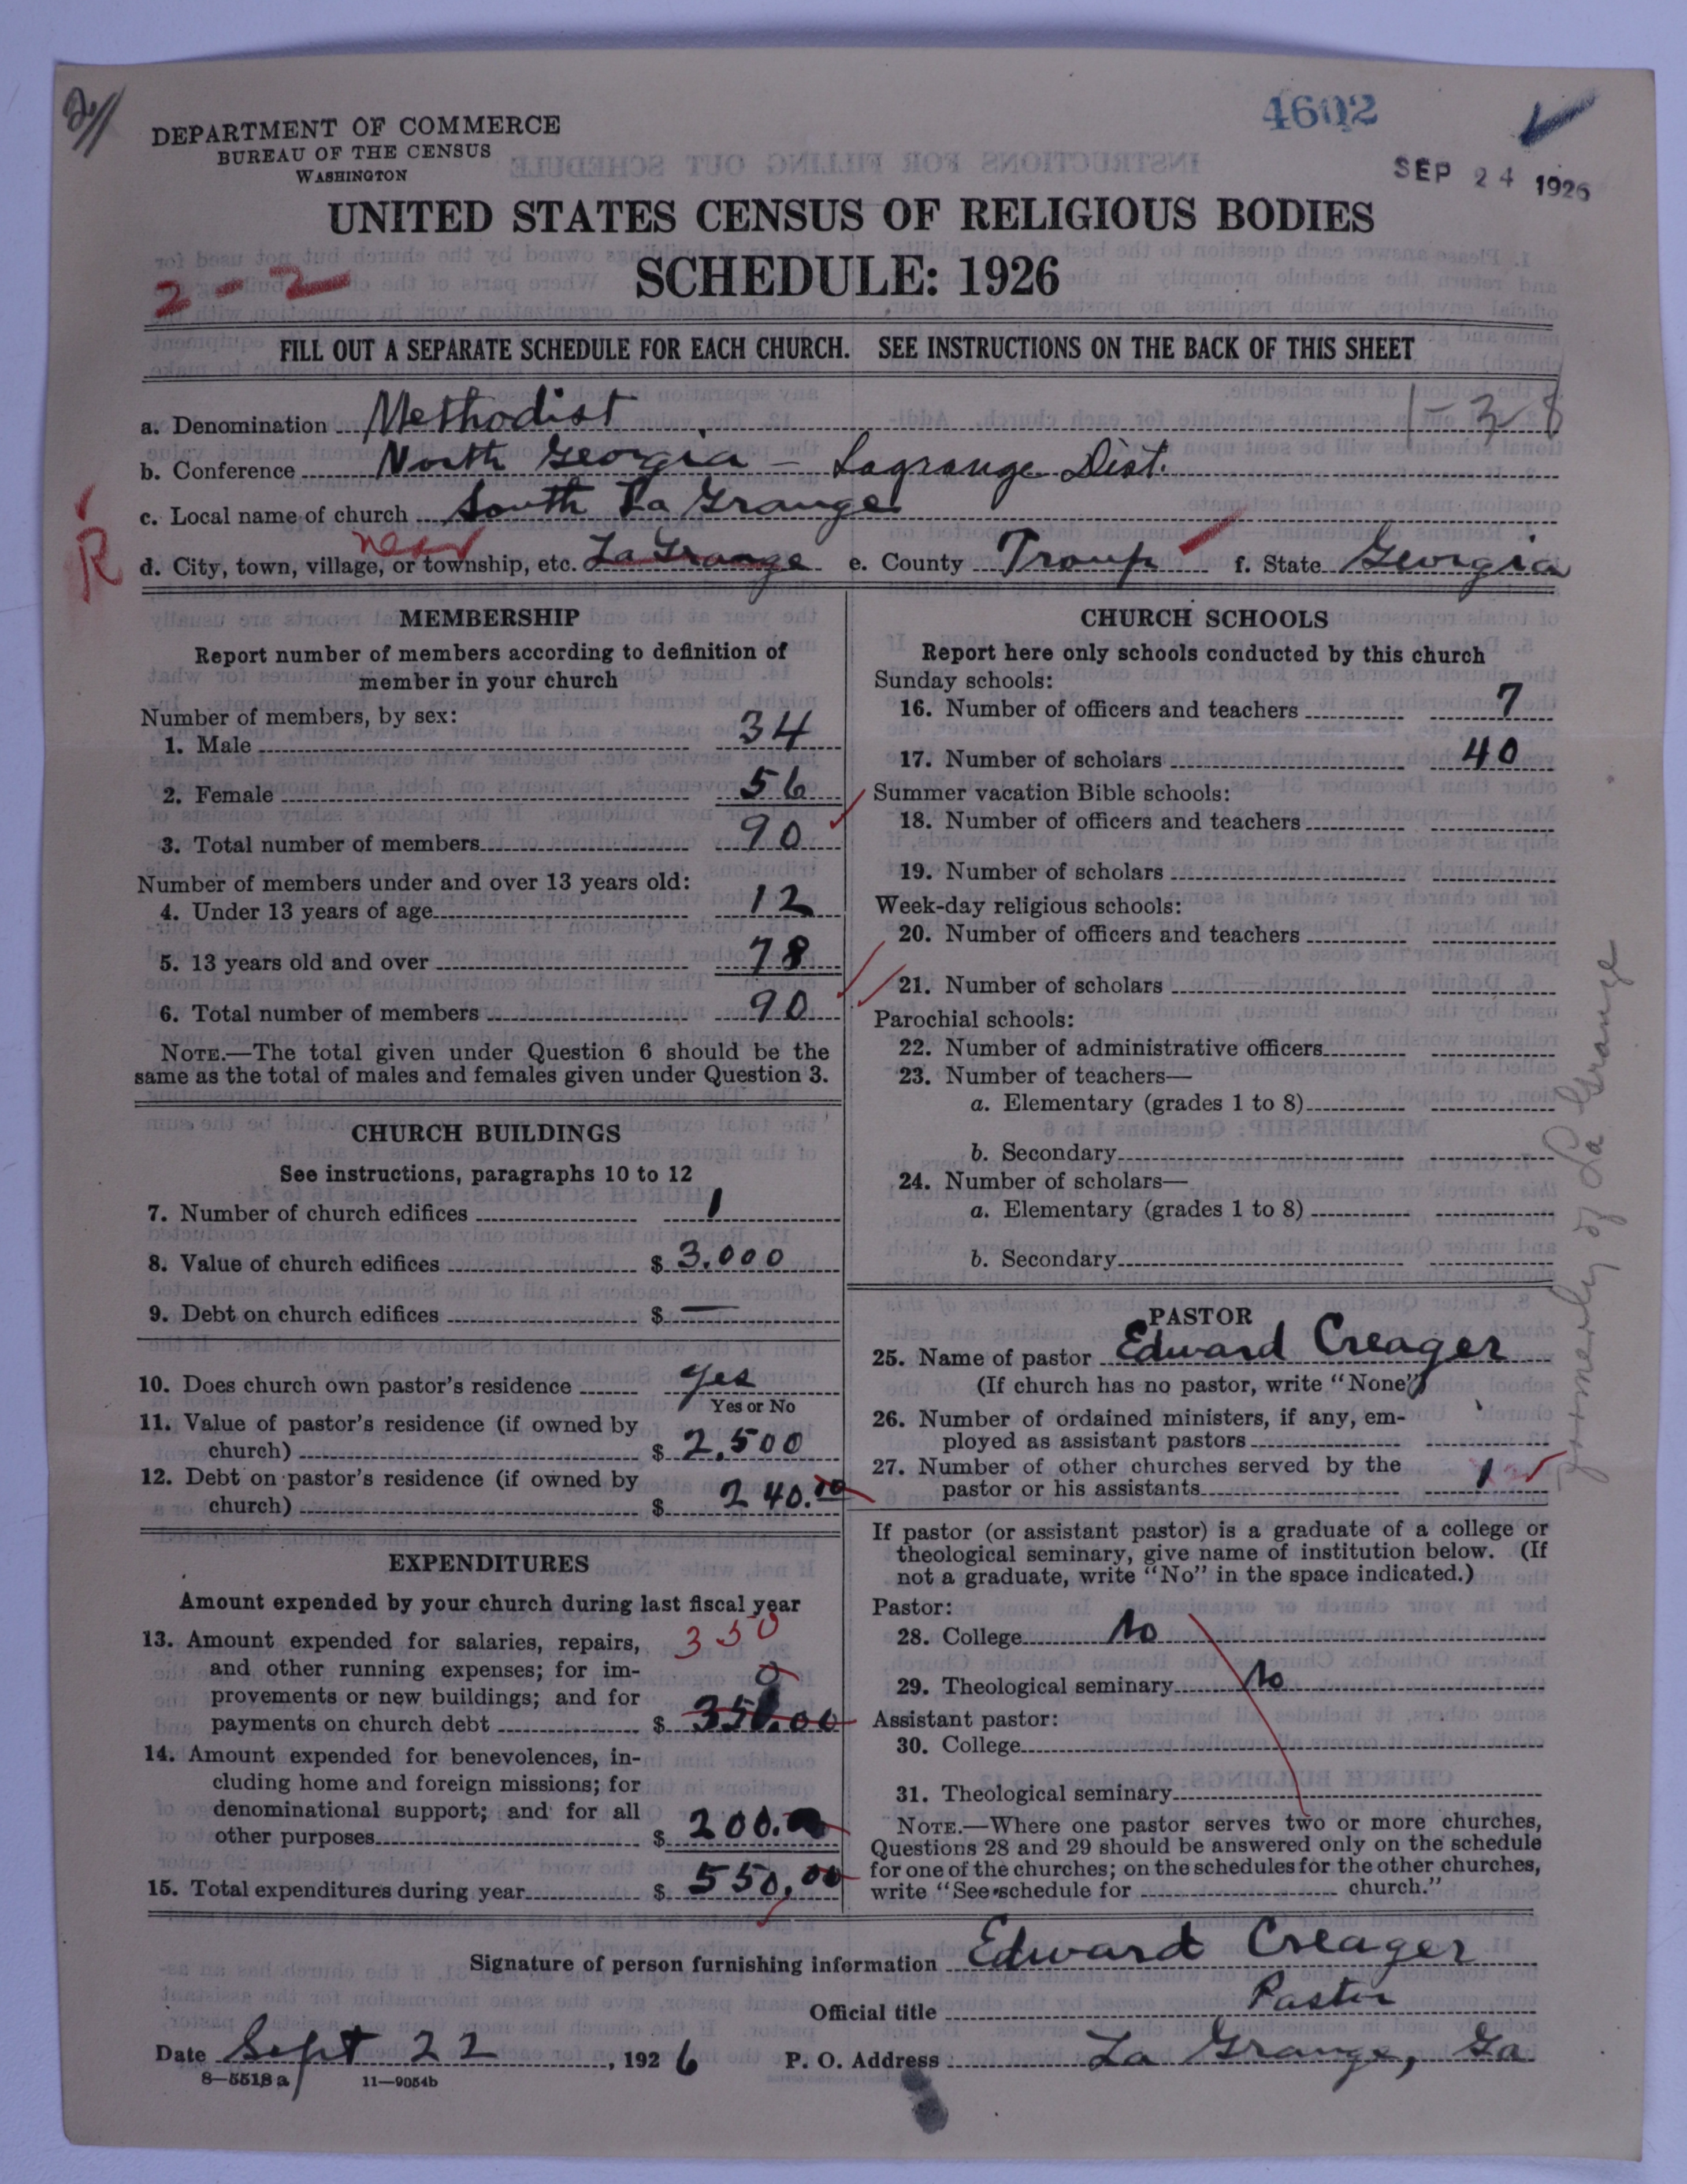 4602
SEP 24 1926
DEPARTMENT OF COMMERCE
BUREAU OF THE CENSUS
WASHINGTON
UNITED STATES CENSUS OF RELIGIOUS BODIES
SCHEDULE: 1926
2-2
FILL OUT A SEPARATE SCHEDULE FOR EACH CHURCH. SEE INSTRUCTIONS ON THE BACK OF THIS SHEET
a. Denomination Methodist 1-38
b. Conference North Georgia - Lagrange Dist.
c. Local name of church South La Grange
R
near
d. City, town, village, or township, etc. La Grange e. County Troup f. State Georgia
MEMBERSHIP
Report number of members according to definition of
member in your church
Number of members, by sex:
1. Male 34
2. Female 56
3. Total number of members 90
Number of members under and over 13 years old:
4. Under 13 years of age 12
5. 13 years old and over 78
6. Total number of members 90
NOTE.—The total given under Question 6 should be the
same as the total of males and females given under Question 3.
CHURCH BUILDINGS
See instructions, paragraphs 10 to 12
7. Number of church edifices 1
8. Value of church edifices $ 3.000
9. Debt on church edifices $ —
10. Does church own pastor's residence yes
Yes or No
11. Value of pastor's residence (if owned by
church) $ 2.500
12. Debt on pastor's residence (if owned by
church) $ 240.00
EXPENDITURES
Amount expended by your church during last fiscal year
13. Amount expended for salaries, repairs, 350
and other running expenses; for im- 0
provements or new buildings; and for
payments on church debt $ 350.00
14. Amount expended for benevolences, in-
cluding home and foreign missions; for
denominational support; and for all
other purposes $ 200.
15. Total expenditures during year $ 550.00
CHURCH SCHOOLS
Report here only schools conducted by this church
Sunday schools:
16. Number of officers and teachers 7
17. Number of scholars 40
Summer vacation Bible schools:
18. Number of officers and teachers
19. Number of scholars
Week-day religious schools:
20. Number of officers and teachers
21. Number of scholars
Parochial schools:
22. Number of administrative officers
23. Number of teachers—
a. Elementary (grades 1 to 8)
b. Secondary
24. Number of scholars—
a. Elementary (grades 1 to 8)
b. Secondary
PASTOR
25. Name of pastor Edward Creager
(If church has no pastor, write "None")
26. Number of ordained ministers, if any, em-
ployed as assistant pastors
27. Number of other churches served by the
pastor or his assistants 1
If pastor (or assistant pastor) is a graduate of a college or
theological seminary, give name of institution below. (If
not a graduate, write "No" in the space indicated.)
Pastor:
28. College No
29. Theological seminary No
Assistant pastor:
30. College
31. Theological seminary
NOTE.—Where one pastor serves two or more churches,
Questions 28 and 29 should be answered only on the schedule
for one of the churches; on the schedules for the other churches,
write "See schedule for church."
formerly of La Grange
Signature of person furnishing information Edward Creager
Official title Pastor
Date Sept 22, 1926 P. O. Address La Grange, Ga
8—5518 a 11—9054b